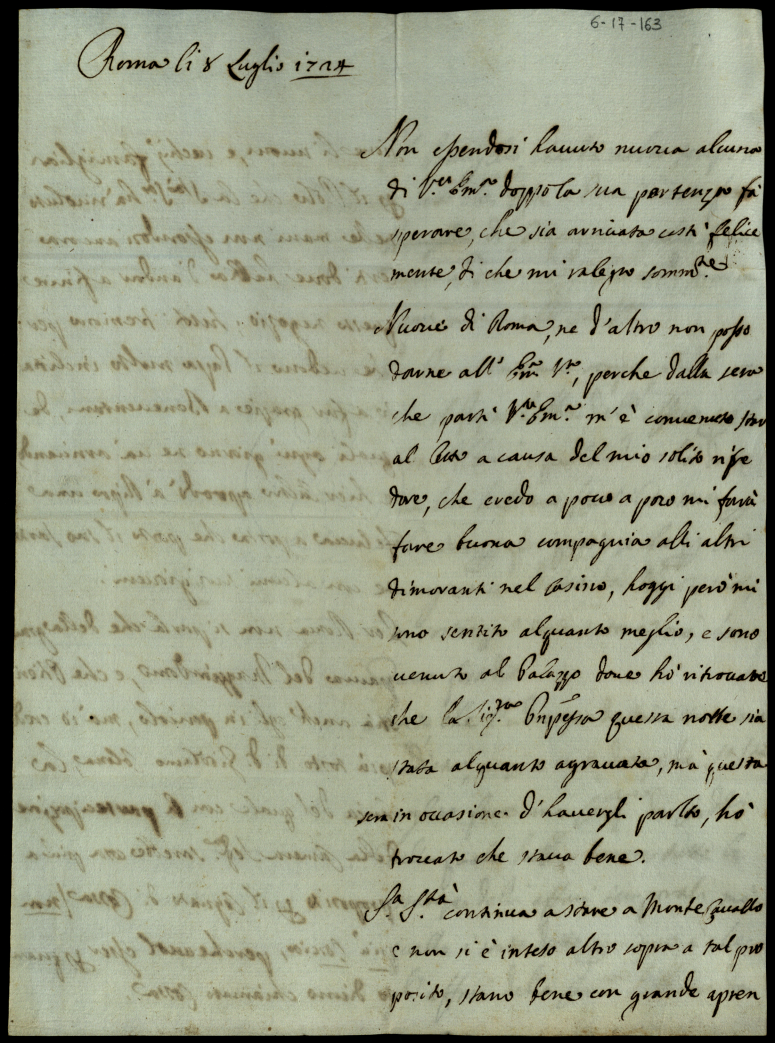 6-17-163
Roma li 8 Luglio 1724
Non essendosi hauuto nuoua alcuna
di V.ra Em.za doppo la sua partenza fà
sperare, che sia arriuata costì felice
mente, di che mi ralegro somm.te
Nuoue di Roma, ne d'altro non posso
darne all' Em. V.ra, perche dalla sera
che partì V.ra Em.za m'è conuenuto star
al letto a causa del mio solito rife
dore, che credo a poco a poco mi farà
fare buona compagnia alli altri
dimoranti nel Casino, hoggi però mi
sono sentito alquanto meglio, e sono
uenuto al Palazzo doue hò ritrouato
che la Sig.ra Pnpessa questa notte sia
stata alquanto agrauata, mà questa
sera in occasione d'hauergli parlato, hò
trouato che staua bene.
S.a S.tà continua a stare a Monte Cauallo
e non si è inteso altro sopra a tal pro
posito, stano bene con grande apren